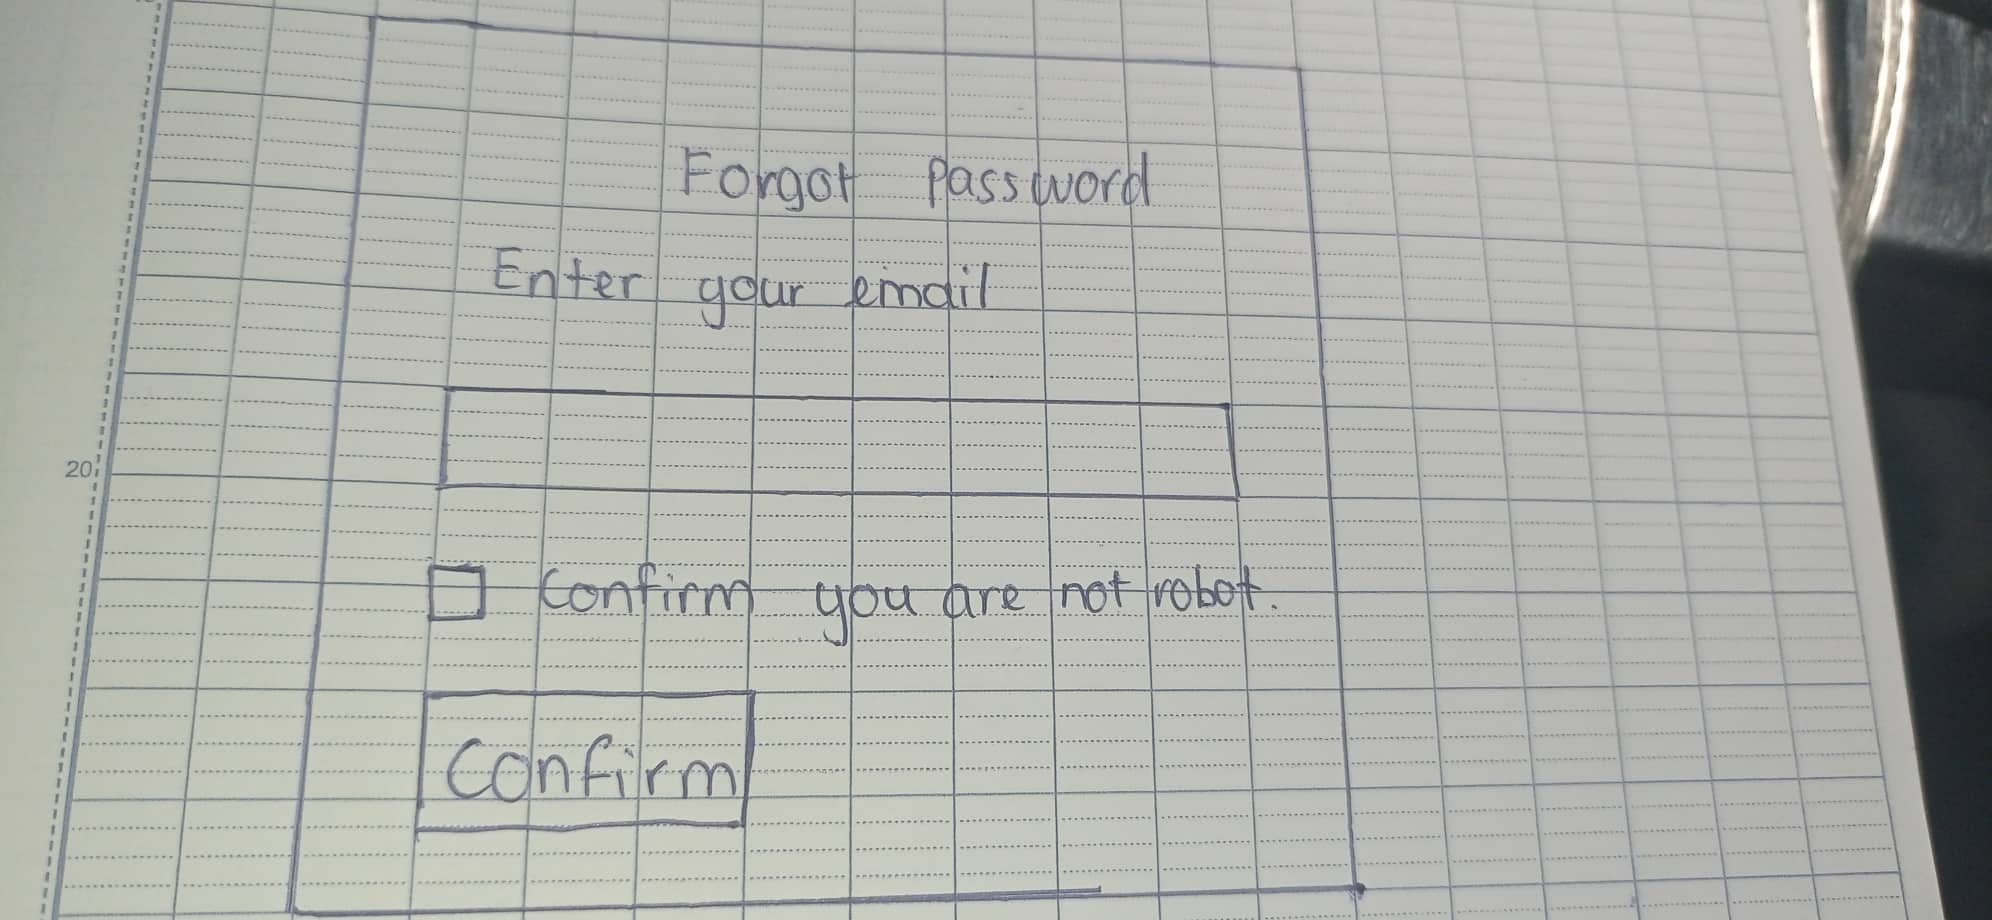 Forgot Password
Enter your email
20
Confirm you are not robot.
Confirm